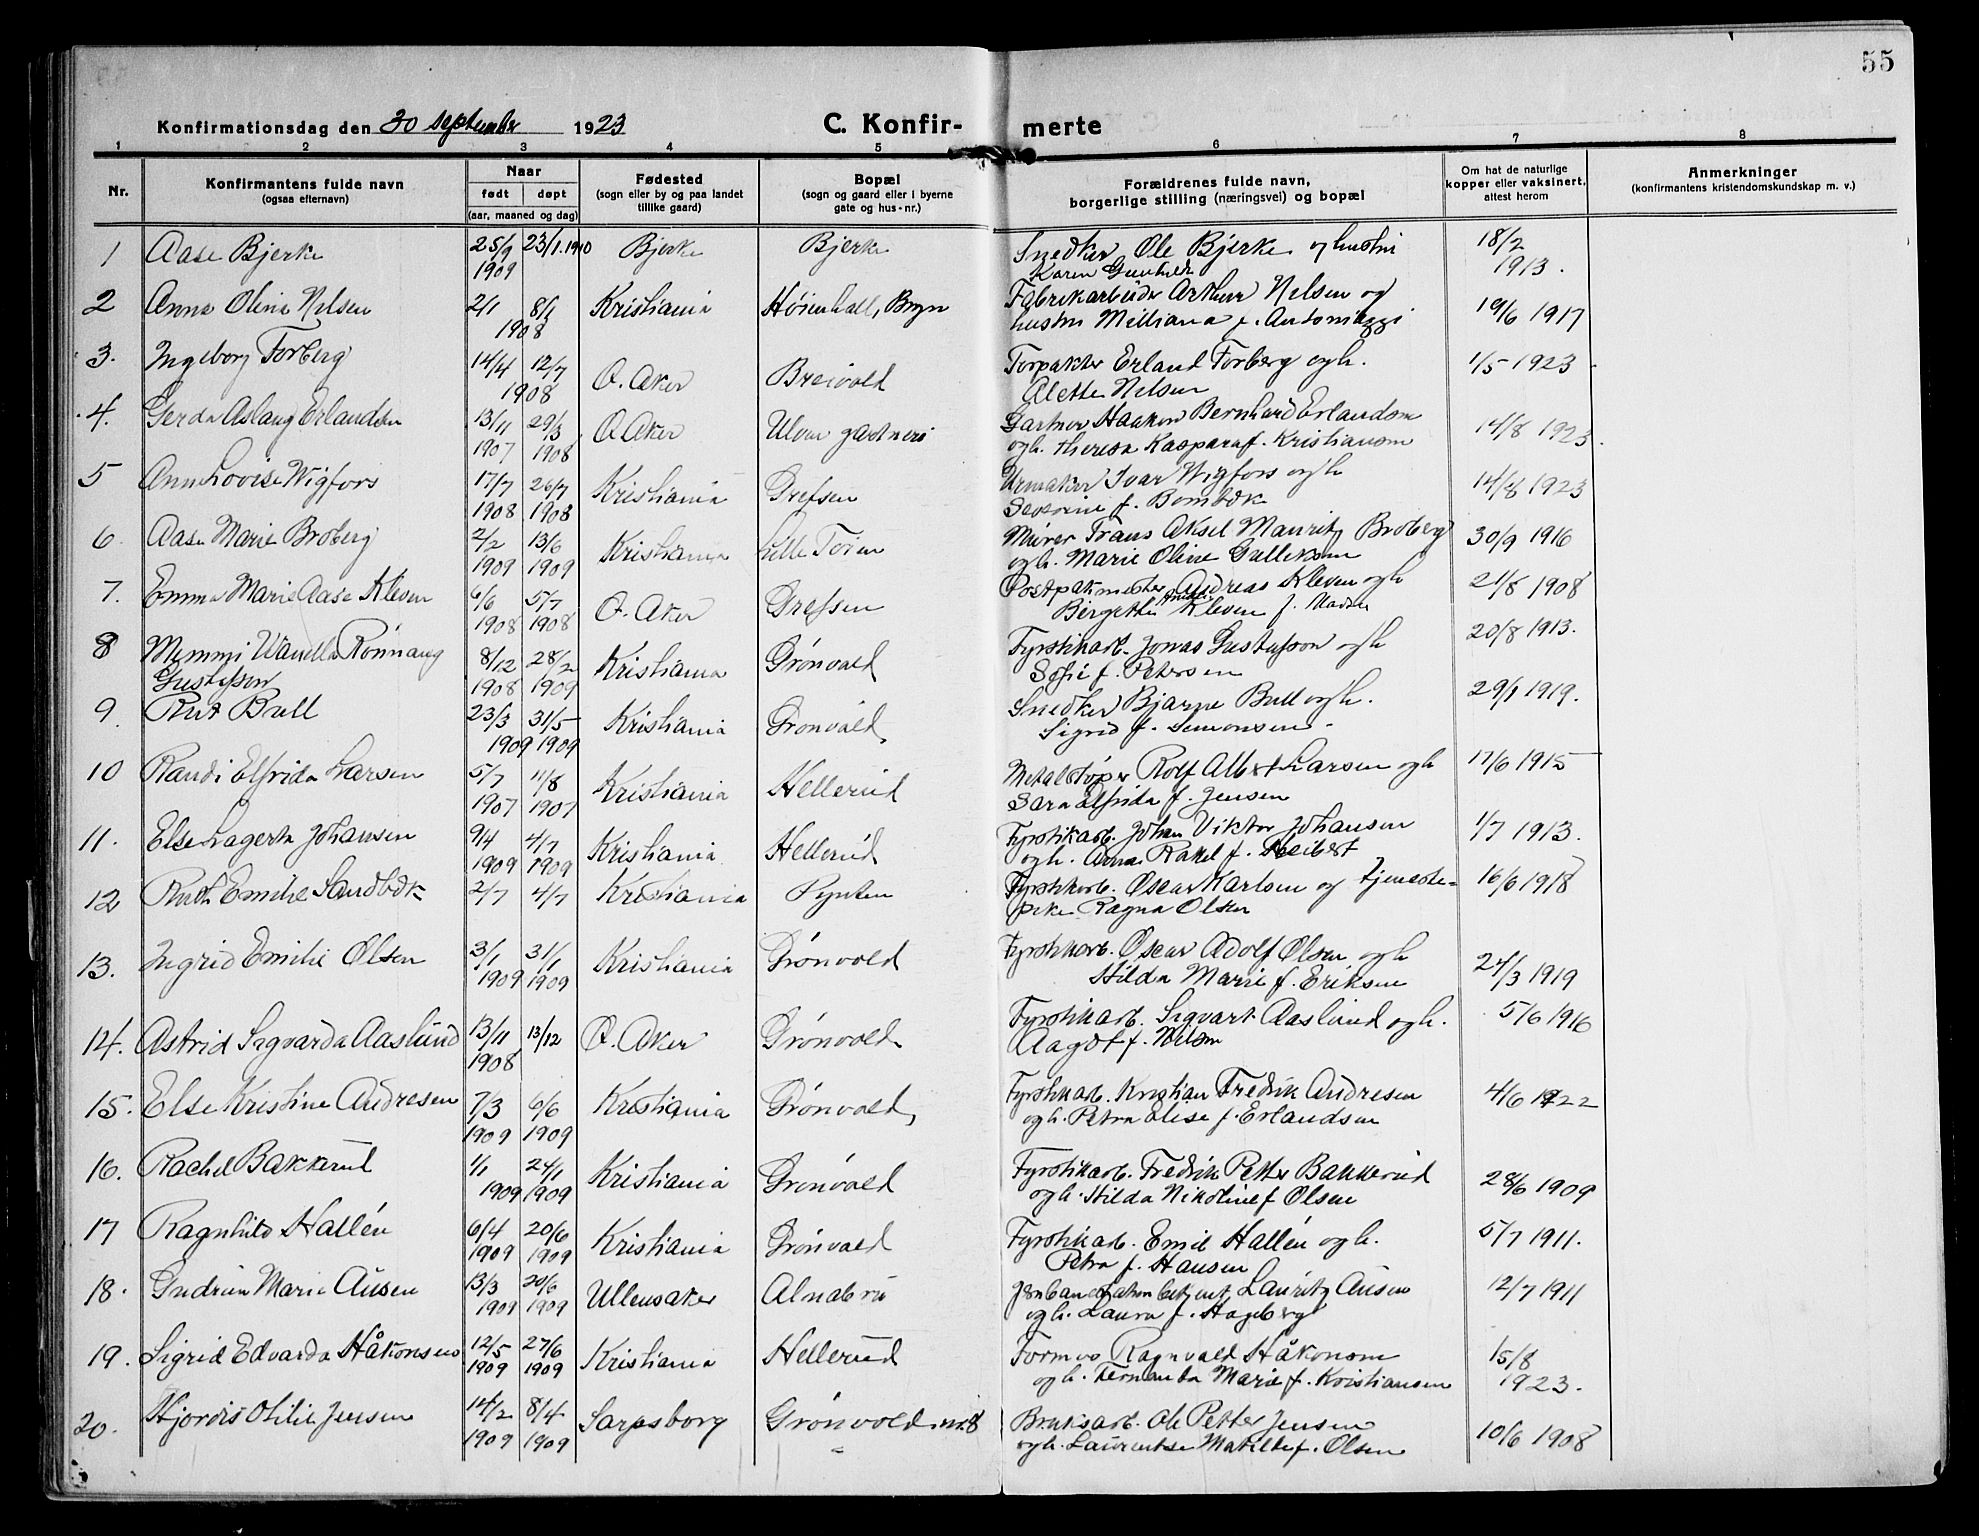 55
Konfirmationsdag den 30 september 1923
C. Konfir- merte
1 2 3 4 5 6 7 8
Nr.
Konfirmantens fulde navn
(ogsaa efternavn)
Naar
født døpt
(aar, maaned og dag)
Fødested
(sogn eller by og paa landet
tillike gaard)
Bopæl
(sogn og gaard eller i byerne
gate og hus-nr.)
Forældrenes fulde navn,
borgerlige stilling (næringsvei) og bopæl
Om hat de naturlige
kopper eller vaksinert,
attest herom
Anmerkninger
(konfirmantens kristendomskundskap m. v.)
1 Aase Bjerke 25/9 23/1.1910 Bjerke Bjerke Snedker Ole Bjerke og hustru 18/2
1909 Karen Gunhild 1913.
2 Anna Olina Nilsen 2/1 8/1 Kristiania Høienhall, Bryn Fabrikarbeider Arthur Nilsen og 19/6 1917
1908 hustru Milliana f. Antoniazzi
3. Ingeborg Forberg 14/4 12/7 Ø. Aker Breivold Forpakter Erland Forberg og h. 1/5 1923
1908 Alette Nilsen
4. Gerda Aslaug Erlandsen 13/11 29/3 Ø. Aker Ulven gartneri Gartner Haakon Bernhard Erlandsen 14/8 1923.
1907 1908 og h. Theresa Kaspara f. Kristiansen
5 Ann Lovise Wigfors 17/7 26/7 Kristiania Grefsen Urmaker Ivar Wigfors og h 14/8 1923
1908 1908 Severine f. Bombæk
6 Aase Marie Broberg 2/2 13/6 Kristiania Lille Tøien Murer Frans Aksel Mauritz Broberg 30/9 1916
1909 1909 og h. Marie Oline Gulliksen
7. Emma Marie Aase Kleven 6/6 5/7 Ø. Aker Grefsen Postpakmester Andreas Kleven og h 21/8 1908
1908 1908 Birgitte Kleven f.
8 Mimmi Wanella Rönnaug 8/12 28/2 Kristiania Grønvold Fyrstikarb. Jonas Gustafsson og h 20/8 1913.
Gustafsson 1908 1909 Sofie f. Petersen
9. Rut Bull 23/3 31/5 Kristiania Grønvold, Snedker Bjarne Bull og h. 29/1 1919.
1909 1909 Sigrid f. Simonsen
10 Randi Elfrida Larsen 5/7 11/8 Kristiania Hellerud Metalstøper Rolf Albert Larsen og h 17/6 1915
1907 1907 Sara Elfrida f. Jensen
11. Else Lagerta Johansen 9/4 4/7 Kristiania Hellerud Fyrstikarb. Johan Viktor Johansen 1/7 1913.
1909 1909 og h. Anna Rakel f. Seibert
12 Ruth Emilie Sandbæk 2/7 4/7 Kristiania Pynten Fyrstikarb. Oscar Karlsen og tjeneste- 16/6 1918
pike Ragna Olsen
13. Ingrid Emilie Olsen 3/1 31/1 Kristiania Grønvold Fyrstikarb. Oscar Adolf Olsen og h 24/3 1919
1909 1909 Hilda Marie f. Eriksen
14. Astrid Sigvarda Aaslund 13/11 13/12 Ø. Aker Grønvold Fyrstikarb. Sigvart Aaslund og h. 5/6 1916
1908 Aagot f. Nilsen
15. Else Kristine Andresen 7/3 6/6 Kristiania Grønvold, Fyrstikarb. Kristian Fredrik Andresen 4/6 1922
1909 1909 og h. Petra Elise f. Erlandsen
16. Rachel Bakkerud 1/1 24/1 Kristiania Grønvold Fyrstikarb. Fredrik Petter Bakkerud 28/6 1909
1909 1909 og h. Hilda Nikoline f Olsen
17 Ragnhild Hallén 6/4 20/6 Kristiania Grønvold Fyrstikarb. Emil Hallén og h. 5/7 1911.
1909 1909 Petra f. Hansen
18. Gudrun Marie Ausen 13/3 20/6 Ullensaker Alnabru Jernbanestationbetjent Lauritz Ausen 12/7 1911
1909 1909 og h. Laura f. Hagberg
19. Sigrid Edvarda Håkonsen 12/5 27/6 Kristiania Hellerud Former Ragnvald Håkonsen 15/8
1909 1909 og h. Fernanda Marie f. Kristiansen 1923.
20. Hjørdis Otilie Jensen 14/2 8/4 Sarpsborg Grønvold nr. 8 Bruksarb. Ole Petter Jensen 10/6 1908
1909 1909 og h. Laurentse Matilde f. Olsen